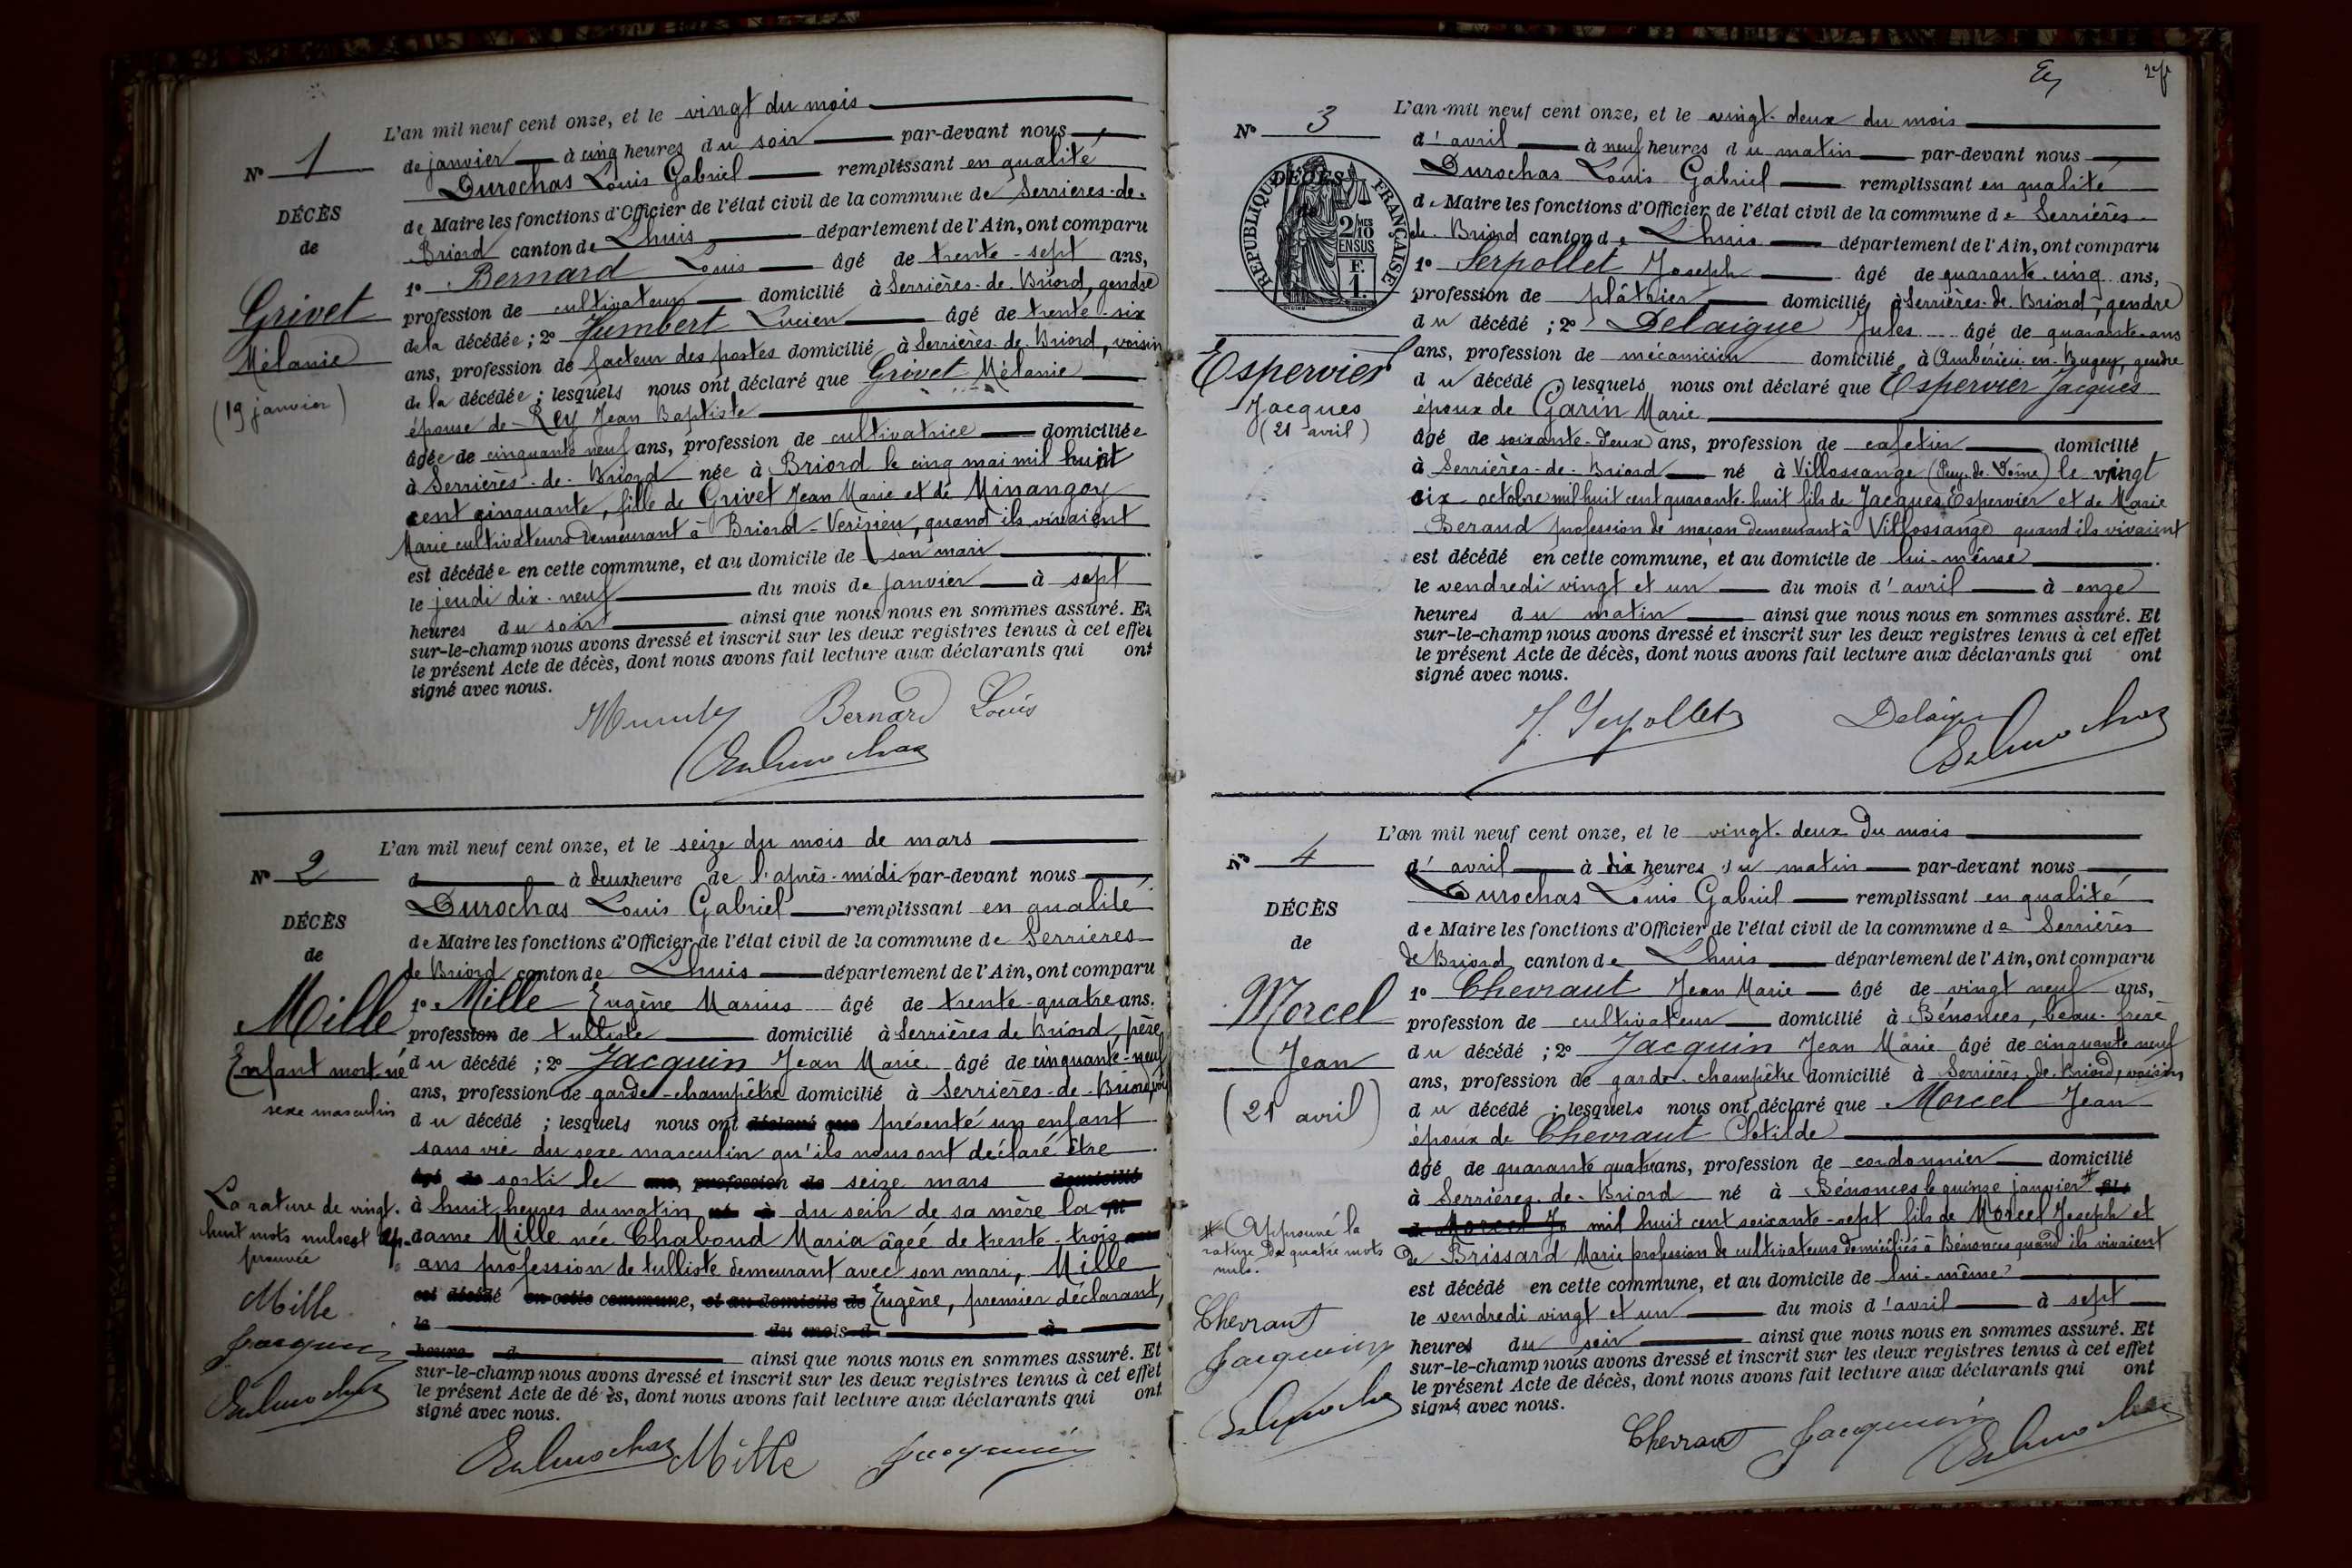 L'an mil neuf cent onze, et le vingt du mois
N° 1
de janvier à cinq heures du soir par-devant nous
Durochas Louis Gabriel remplissant en qualité
DÉCÈS
de Maire les fonctions d'Officier de l'état civil de la commune de Serrières-de-
de
Briord canton de Lhuis département de l'Ain, ont comparu
1° Bernard Louis âgé de trente-sept ans,
Grivet
profession de cultivateur domicilié à Serrières-de-Briord, gendre
Mélanie
de la décédée ; 2° Humbert Lucien âgé de trente-six
(19 janvier)
ans, profession de facteur des postes domicilié à Serrières-de-Briord, voisin
de la décédée ; lesquels nous ont déclaré que Grivet Mélanie
épouse de Rey Jean Baptiste
âgée de cinquante neuf ans, profession de cultivatrice domiciliée
à Serrières-de-Briord née à Briord le cinq mai mil huit
cent cinquante, fille de Grivet Jean Marie et de Minangoy
Marie cultivateurs demeurant à Briord-Verizieu, quand ils vivaient
est décédée en cette commune, et au domicile de son mari
le jeudi dix-neuf du mois de janvier à sept
heures du soir ainsi que nous nous en sommes assuré. Et
sur-le-champ nous avons dressé et inscrit sur les deux registres tenus à cet effet
le présent Acte de décès, dont nous avons fait lecture aux déclarants qui ont
signé avec nous.
Bernard Louis
L'an mil neuf cent onze, et le seize du mois de mars
N° 2
d à deux heure de l'après-midi par-devant nous
Durochas Louis Gabriel remplissant en qualité
DÉCÈS
de Maire les fonctions d'Officier de l'état civil de la commune de Serrières
de
de Briord canton de Lhuis département de l'Ain, ont comparu
Mille
1° Mille Eugène Marius âgé de trente-quatre ans.
profession de tulliste domicilié à Serrières de Briord, père
Enfant mort-né
du décédé ; 2° Jacquin Jean Marie âgé de cinquante-neuf
ans, profession de garde-champêtre domicilié à Serrières-de-Briord,
sexe masculin
du décédé ; lesquels nous ont déclaré que présenté un enfant
sans vie du sexe masculin qu'ils nous ont déclaré être
âgé de sorti le ans, profession de seize mars domicilié
La rature de vingt-
à huit heures du matin né à du sein de sa mère la
huit mots nuls est ap-
dame Mille née Chabond Maria âgée de trente-trois
prouvée
ans profession de tulliste demeurant avec son mari, Mille
est décédé en cette commune, et au domicile de Eugène, premier déclarant,
Mille
le du mois d à
Jacquin
heure d ainsi que nous nous en sommes assuré. Et
sur-le-champ nous avons dressé et inscrit sur les deux registres tenus à cet effet
Durochas
le présent Acte de décès, dont nous avons fait lecture aux déclarants qui ont
signé avec nous.
Durochas Mille Jacquin
L'an mil neuf cent onze, et le vingt-deux du mois
N° 3
d'avril à neuf heures du matin par-devant nous
Durochas Louis Gabriel remplissant en qualité
DÉCÈS
de
RÉPUBLIQUE FRANÇAISE
2/10 MES
EN SUS
F.
1.
de Maire les fonctions d'Officier de l'état civil de la commune de Serrières-
de-Briord canton de Lhuis département de l'Ain, ont comparu
1° Serpollet Joseph âgé de quarante-cinq ans,
profession de plâtrier domicilié à Serrières-de-Briord, gendre
du décédé ; 2° Delaigue Jules âgé de quarante-ans
ans, profession de mécanicien domicilié à Ambérieu-en-Bugey, gendre
Espervier
du décédé lesquels nous ont déclaré que Espervier Jacques
Jacques
époux de Garin Marie
(21 avril)
âgé de soixante-deux ans, profession de cafetier domicilié
à Serrières-de-Briord né à Villossange (Puy-de-Dôme) le vingt
six octobre mil huit cent quarante-huit fils de Jacques Espervier et de Marie
Beraud profession de maçon demeurant à Villossange quand ils vivaient
est décédé en cette commune, et au domicile de lui-même
le vendredi vingt et un du mois d'avril à onze
heures du matin ainsi que nous nous en sommes assuré. Et
sur-le-champ nous avons dressé et inscrit sur les deux registres tenus à cet effet
le présent Acte de décès, dont nous avons fait lecture aux déclarants qui ont
signé avec nous.
J. Serpollet Delaigue Durochas
L'an mil neuf cent onze, et le vingt-deux du mois
N° 4
d'avril à dix heures du matin par-devant nous
Durochas Louis Gabriel remplissant en qualité
DÉCÈS
de Maire les fonctions d'Officier de l'état civil de la commune de Serrières
de
de Briord canton de Lhuis département de l'Ain, ont comparu
Morcel
1° Chevraut Jean Marie âgé de vingt neuf ans,
profession de cultivateur domicilié à Bénonces, beau-frère
Jean
du décédé ; 2° Jacquin Jean Marie âgé de cinquante neuf
ans, profession de garde-champêtre domicilié à Serrières-de-Briord, voisin
(21 avril)
du décédé ; lesquels nous ont déclaré que Morcel Jean
époux de Chevraut Clotilde
âgé de quarante quatre ans, profession de cordonnier domicilié
à Serrières-de-Briord né à Bénonces le quinze janvier # fils
de Morcel Jo mil huit cent soixante-sept fils de Morcel Joseph et
# Approuvé la
rature de quatre mots
nuls.
de Brissard Marie profession de cultivateurs domiciliés à Bénonces quand ils vivaient
est décédé en cette commune, et au domicile de lui-même
Chevraut
le vendredi vingt et un du mois d'avril à sept
Jacquin
heures du soir ainsi que nous nous en sommes assuré. Et
sur-le-champ nous avons dressé et inscrit sur les deux registres tenus à cet effet
Durochas
le présent Acte de décès, dont nous avons fait lecture aux déclarants qui ont
signé avec nous.
Chevraut Jacquin Durochas